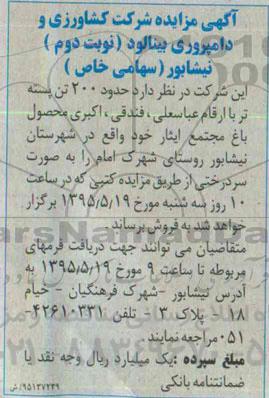 آگهی مزایده شرکت کشاورزی و
دامپروری بینالود (نوبت دوم)
نیشابور (سهامی خاص)
این شرکت در نظر دارد حدود ۲۰۰ تن پسته
تر با ارقام عباسعلی، فندقی، اکبری محصول
باغ مجتمع ایثار خود واقع در شهرستان
نیشابور روستای شهرک امام را به صورت
سردرختی از طریق مزایده کتبی که در ساعت
۱۰ روز سه شنبه مورخ ۱۳۹۵/۵/۱۹ برگزار
خواهد شد به فروش برساند.
متقاضیان می توانند جهت دریافت فرمهای
مربوطه تا ساعت ۹ مورخ ۱۳۹۵/۵/۱۹ به
آدرس نیشابور -شهرک فرهنگیان - خیام
۱۸ - پلاک ۳ - تلفن ۴۲۶۱۰۳۳۱-
۰۵۱ مراجعه نمایند.
مبلغ سپرده: یک میلیارد ریال وجه نقد یا
ضمانتنامه بانکی
۹۵۱۳۷۲۳۹/ش